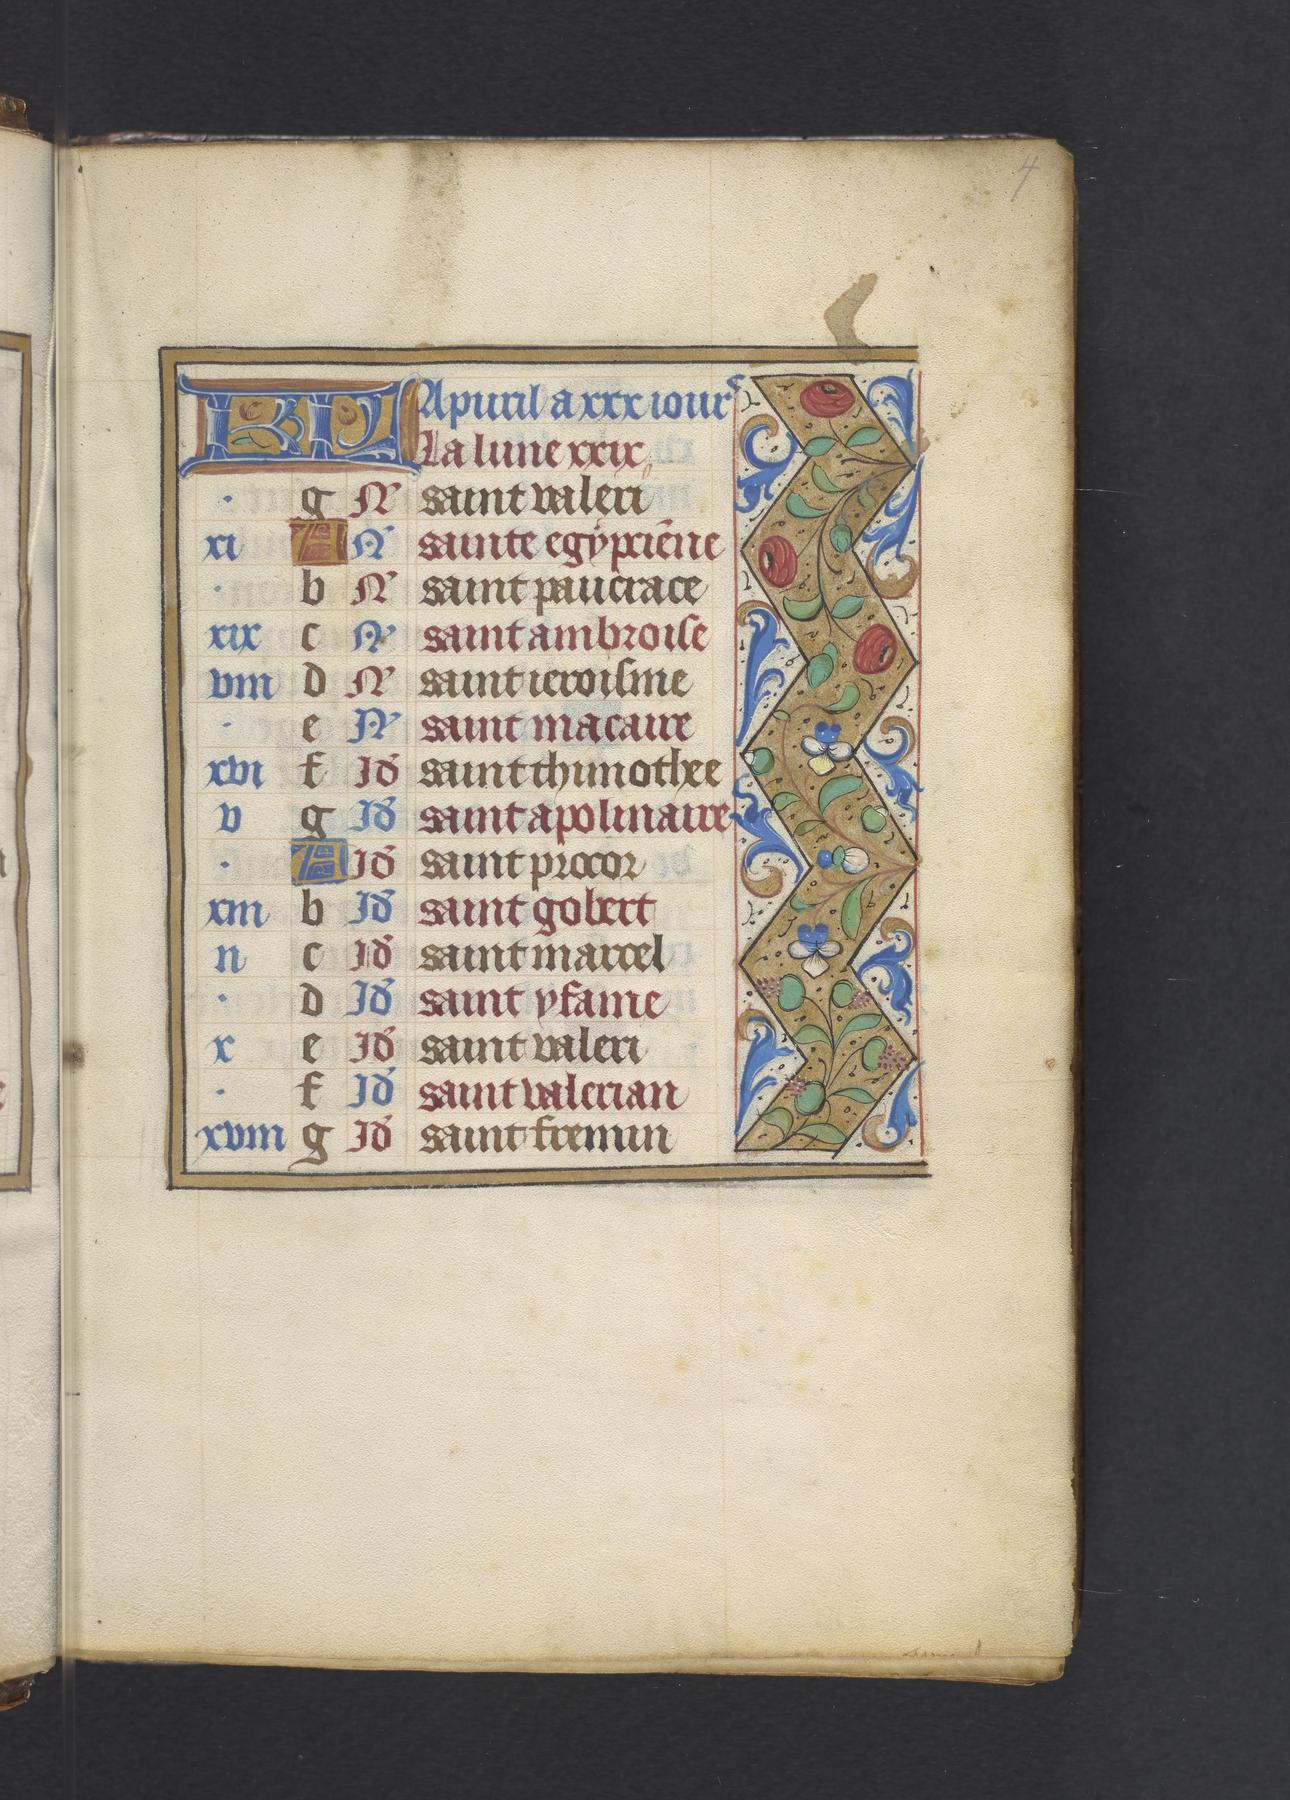 4
KL Apuril a xxx iours
La lune xxix
· g N saint valeri
xi A N sainte egypciẽne
· b N saint paucrace
xix c N saint ambroise
viii d N saint ieroisme
· e N saint macaire
xvi f Id saint thimothee
v g Id saint apolinaire
· A Id saint procor
xiii b Id saint gobert
ii c Id saint marcel
· d Id saint yfame
x e Id saint valeri
· f Id saint valerian
xviii g Id saint fremin